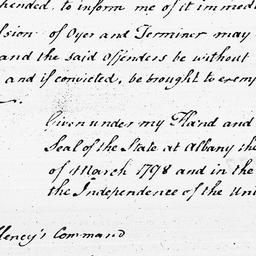 hended, to inform me of it immed
sion of Oyer and Terminer may
and the said Offenders be without
and if convicted, be brought to exem
Given under my Hand and
Seal of the State at Albany the
of March 1798 and in the
the Independence of the Uni
llency's Command